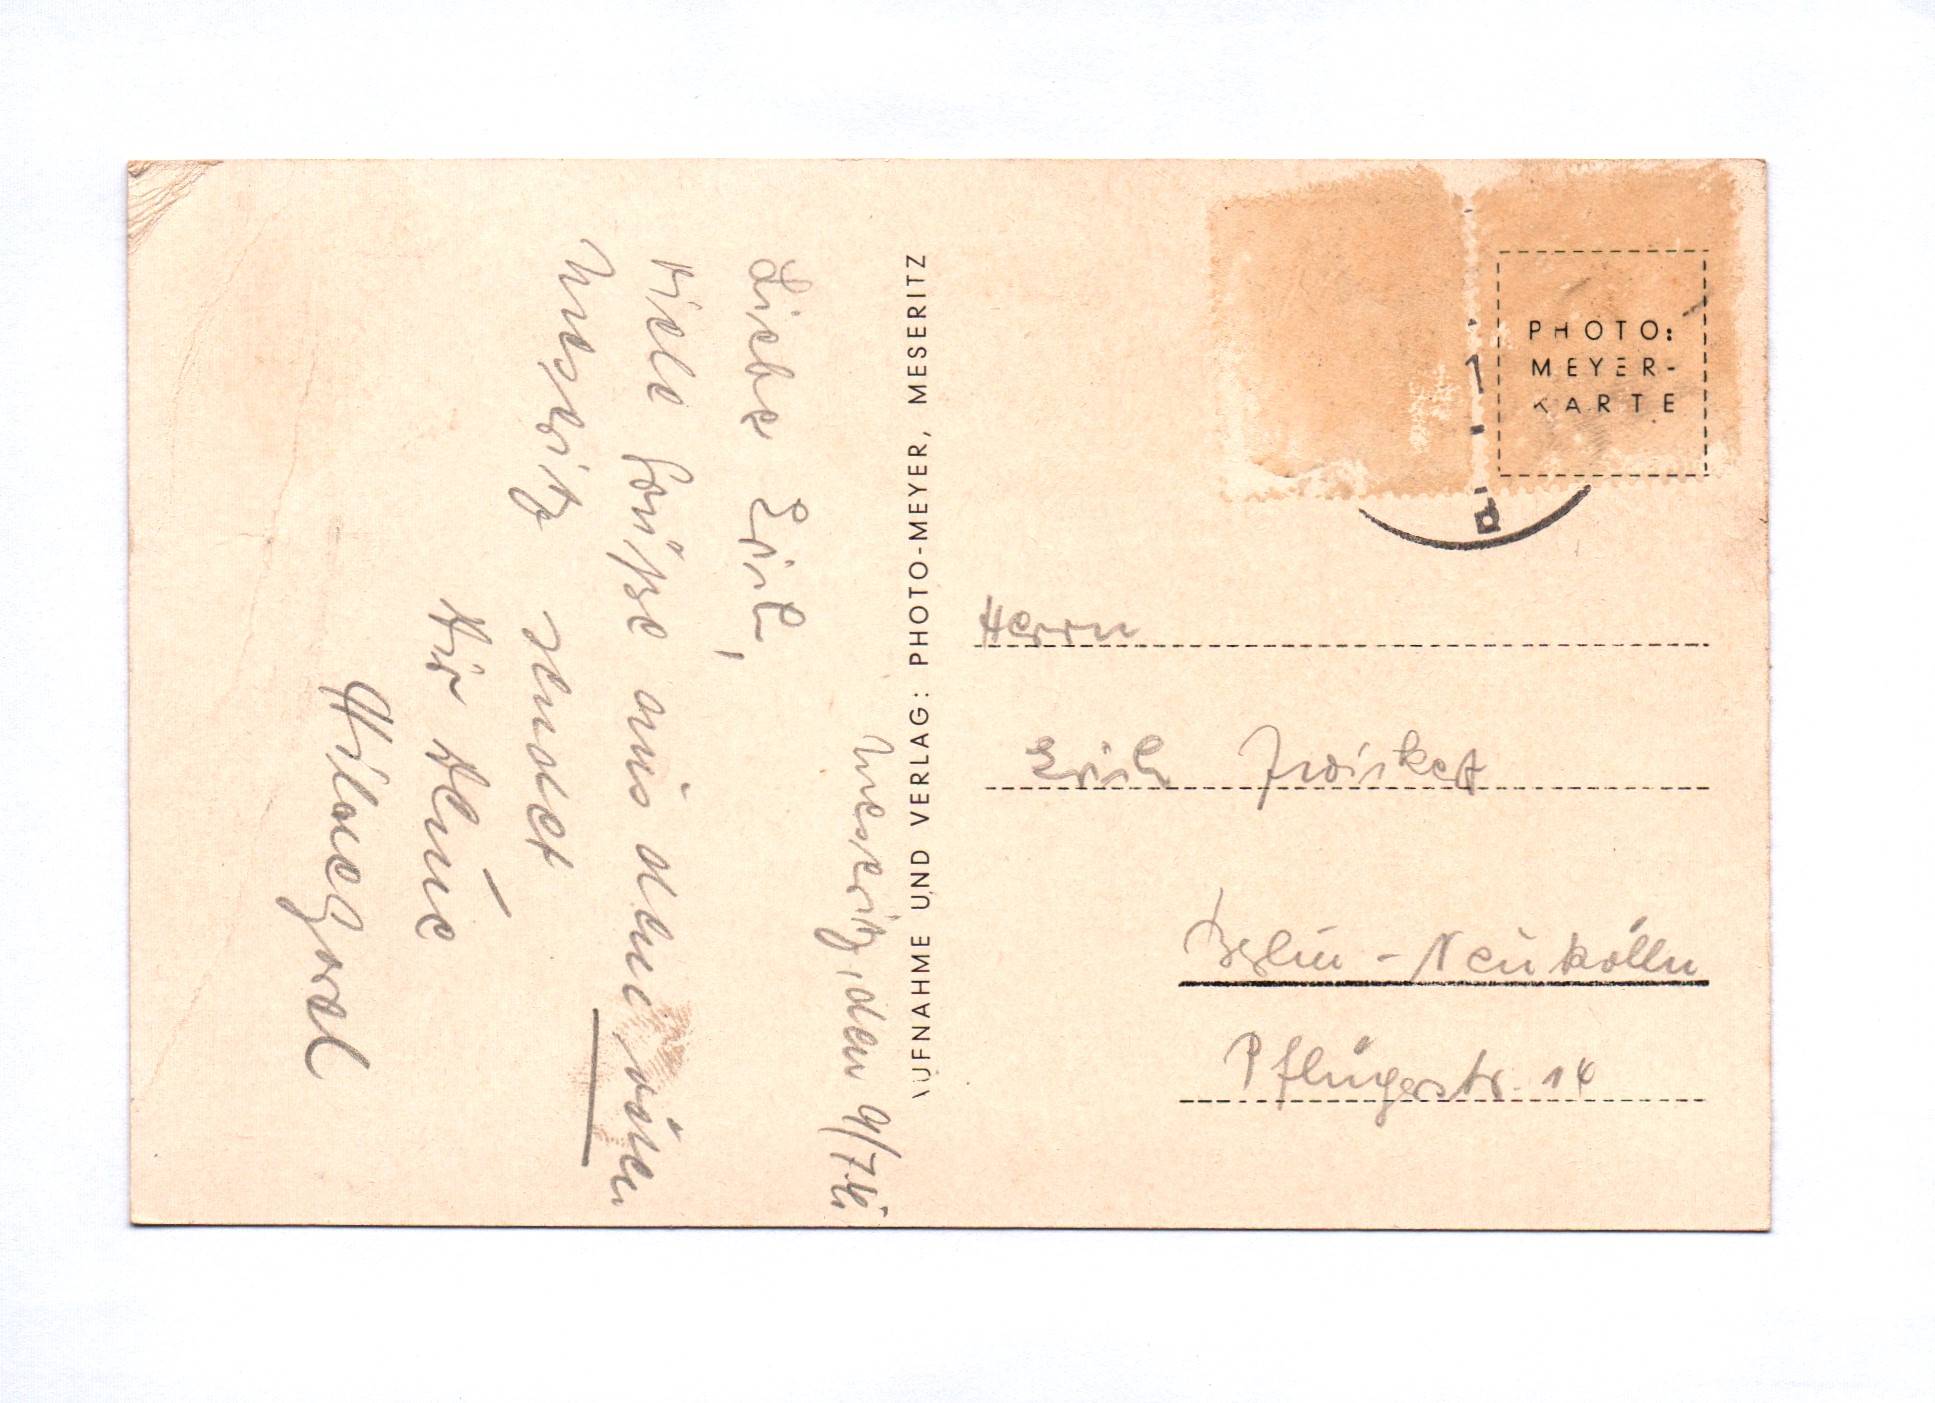 Meseritz, den 9/7.
Liebe Erich,
Viele Grüsse aus dem
Meseritz sendet
Dir Deine
Hildegard
AUFNAHME UND VERLAG: PHOTO-MEYER, MESERITZ
PHOTO:
MEYER-
KARTE
1
Herrn
Erich
Berlin-Neukölln
Pflügerstr. 14